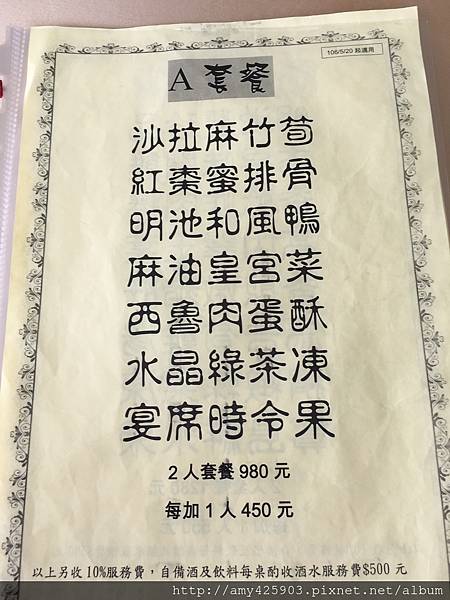 106/5/20 起適用
A 套餐
沙拉麻竹荀
紅棗蜜排骨
明池和風鴨
麻油皇宮菜
西魯肉蛋酥
水晶綠茶凍
宴席時令果
2 人套餐 980 元
每加 1 人 450 元
以上另收 10%服務費，自備酒及飲料每桌酌收酒水服務費$500 元
http://amy425903.pixnet.net/album